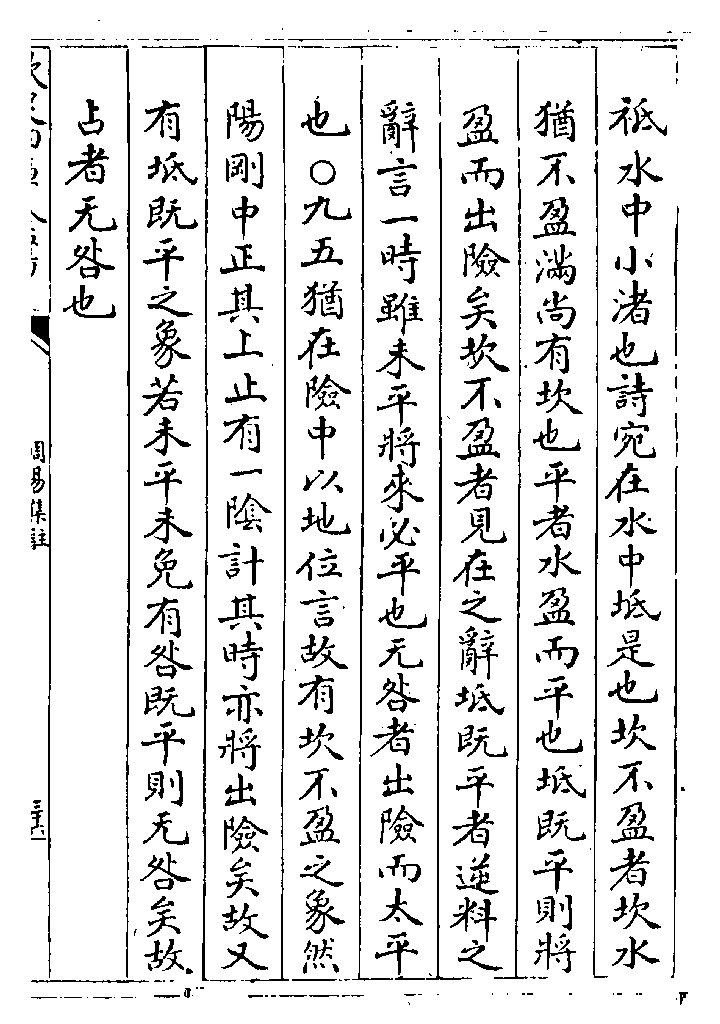 祗水中小渚也詩宛在水中坻是也坎不盈者坎水
猶不盈滿尚有坎也平者水盈而平也坻既平則將
盈而出險矣坎不盈者見在之辭坻既平者逆料之
辭言一時雖未平將來必平也无咎者出險而太平
也○九五猶在險中以地位言故有坎不盈之象然
陽剛中正其上止有一陰計其時亦將出險矣故又
有坻既平之象若未平未免有咎既平則无咎矣故
占者无咎也
周易集註